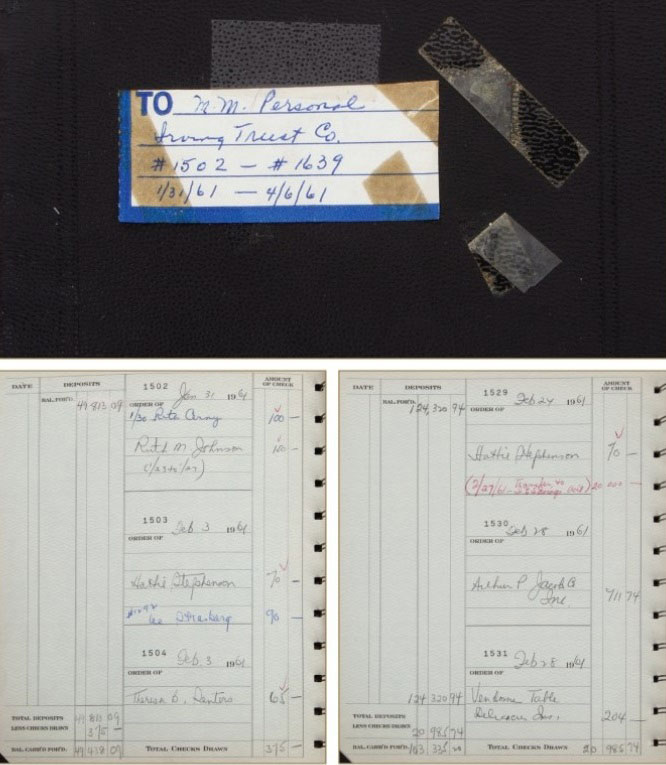 TO M.M. Personal
Irving Trust Co.
#1502 — #1639
1/31/61 — 4/6/61
DATE DEPOSITS AMOUNT OF CHECK
BAL. FOR'D. 49 813 09
1502 Jan 31 1961
ORDER OF
1/30 100 —
Ruth M Johnson 100 —
1503 Feb 3 1961
ORDER OF
Hattie Stephenson 70 —
Lee Strasberg 90 —
1504 Feb. 3 1961
ORDER OF
Theresa D. 65
TOTAL DEPOSITS 49 813 09
LESS CHECKS DRAWN 375 —
BAL. CARR'D. FOR'D. 49 438 09 TOTAL CHECKS DRAWN 375 —
DATE DEPOSITS AMOUNT OF CHECK
BAL. FOR'D. 124,320 94
1529 Feb 24 1961
ORDER OF
Hattie Stephenson 70 —
(2/27/61 - Transfer to 20 000 —
1530 Feb 28 1961
ORDER OF
Arthur P. Jacobs Co
Inc. 711 74
1531 Feb 28 1961
ORDER OF
124 320 94 Vendome Table
Delicacies Inc. 204 —
TOTAL DEPOSITS
LESS CHECKS DRAWN 20 985 74
BAL. CARR'D. FOR'D. TOTAL CHECKS DRAWN 20 985 74